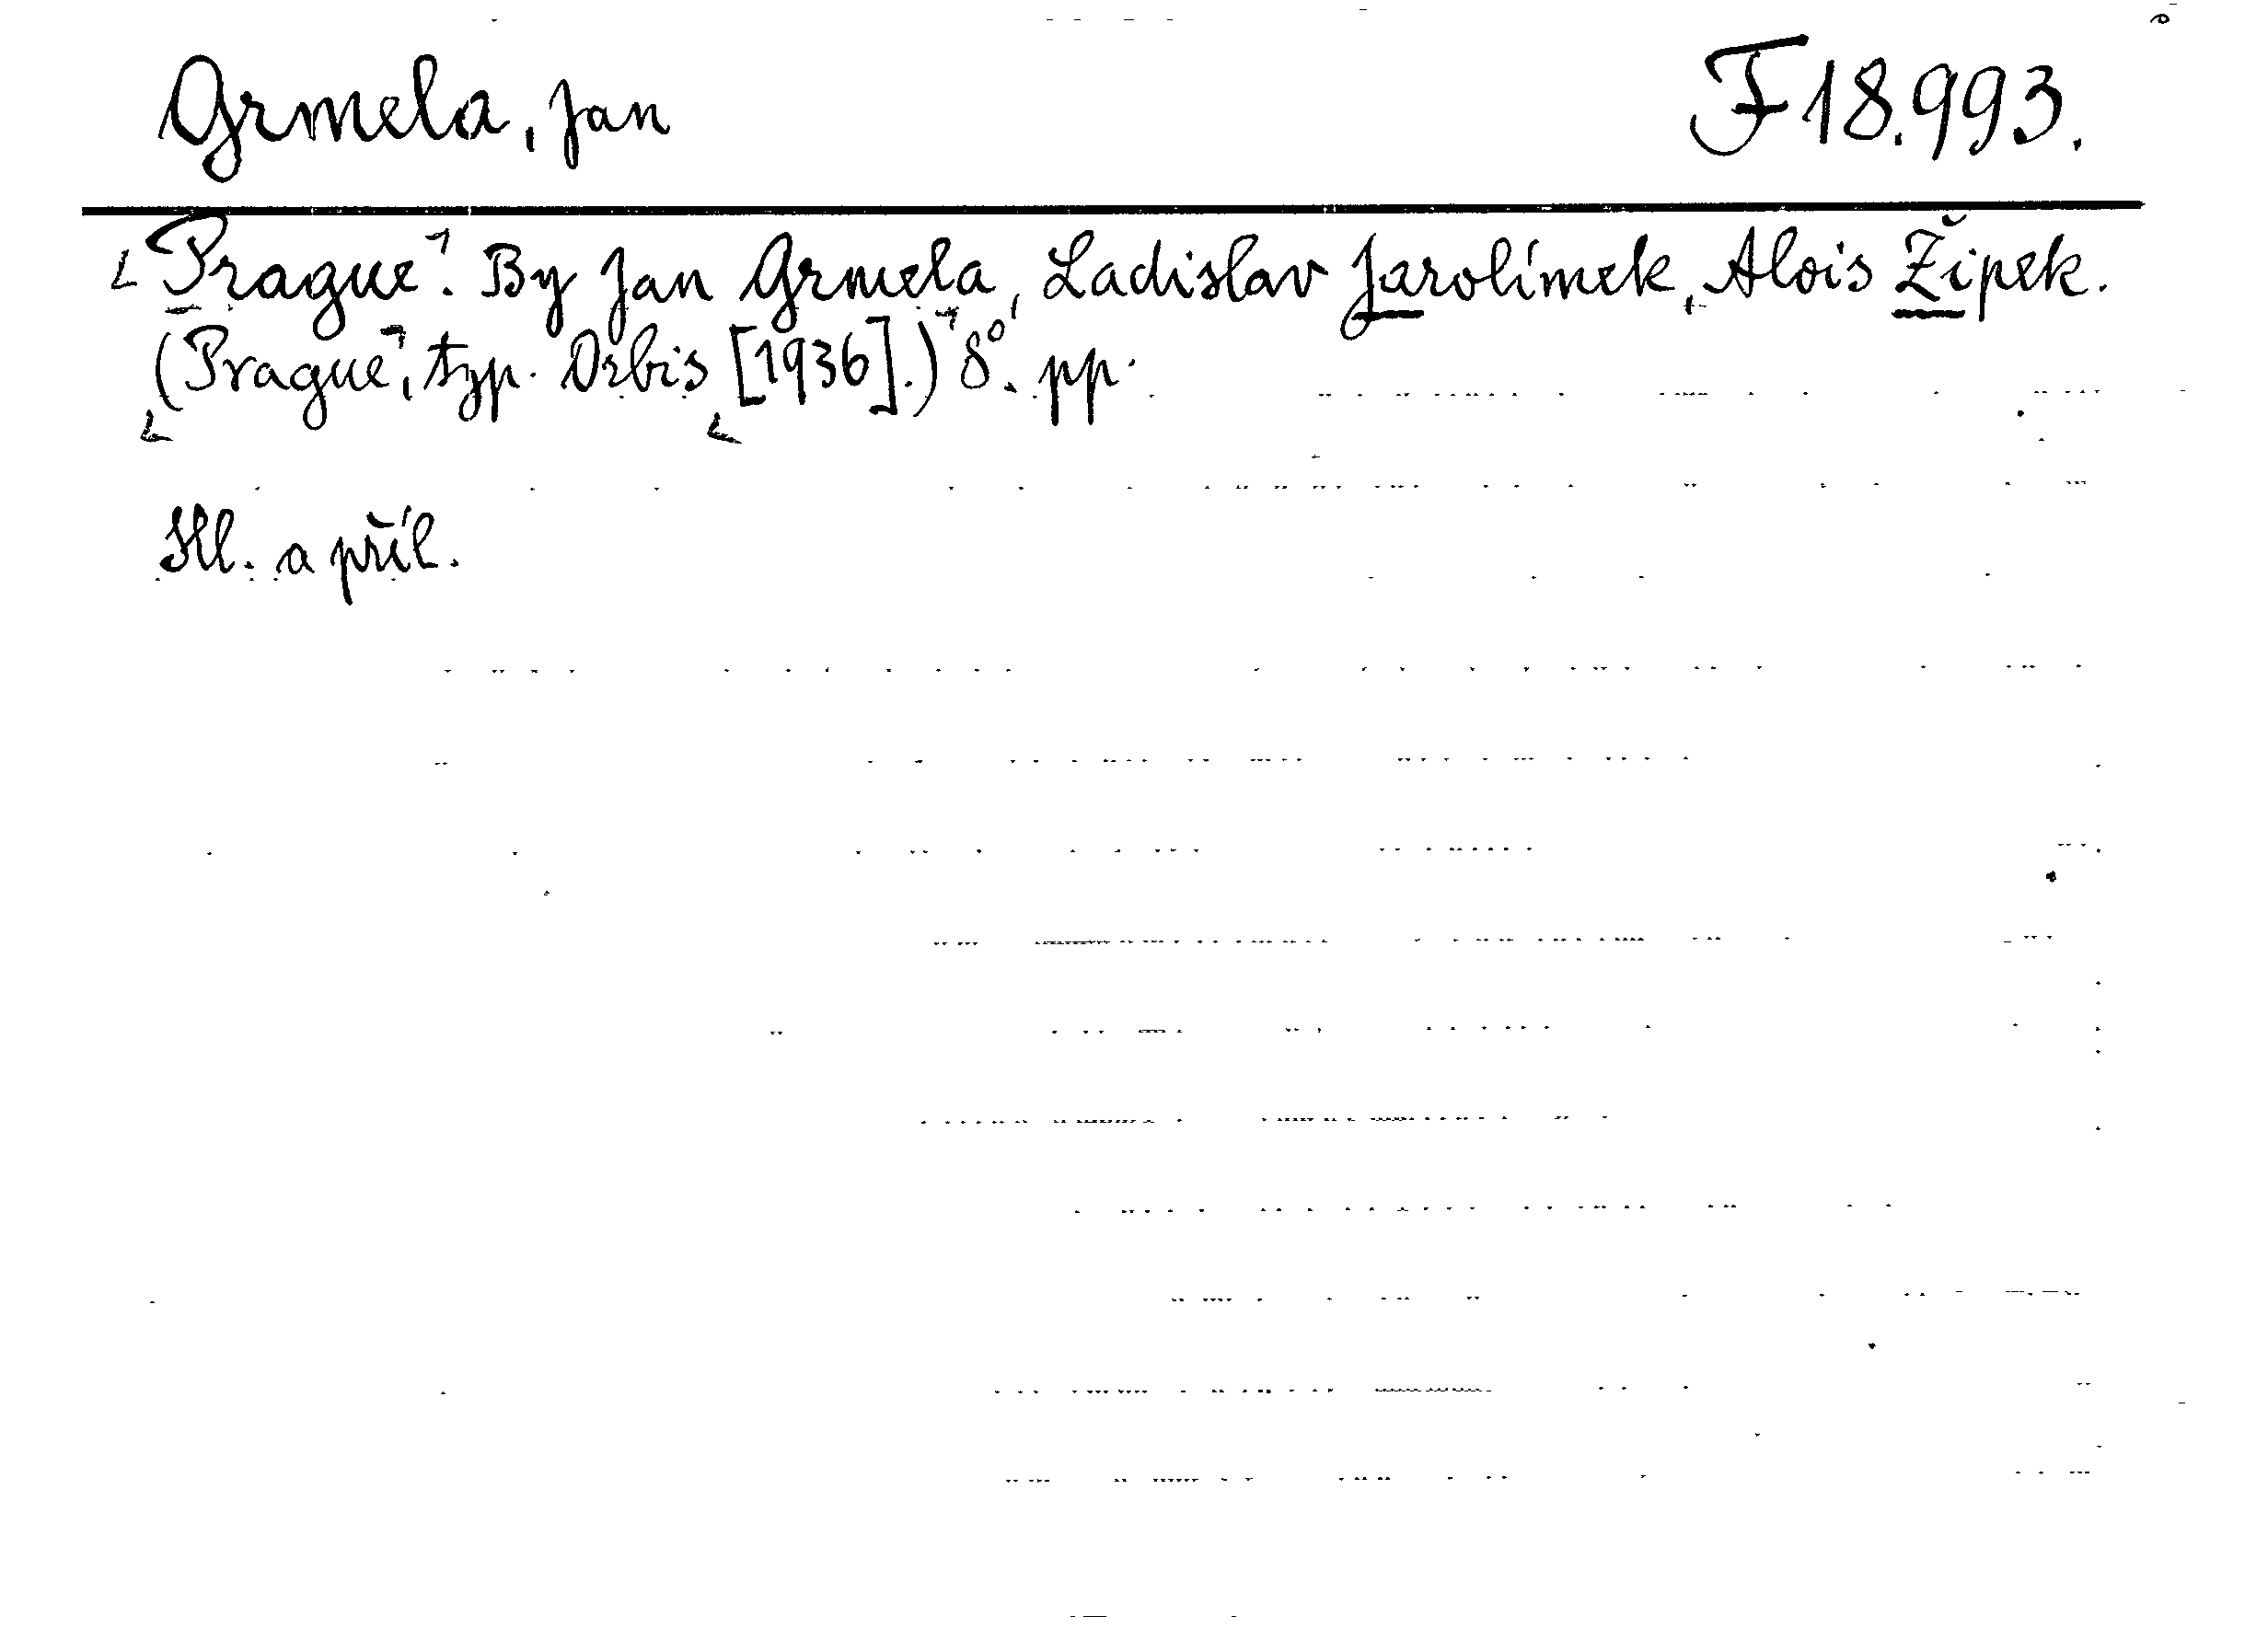 Grmela, Jan F 18.993.
Prague. By Jan Grmela, Ladislav Jarolímek, Alois Žipek.
(Prague, typ. Orbis [1936].) 8°. pp.
Il. a příl.